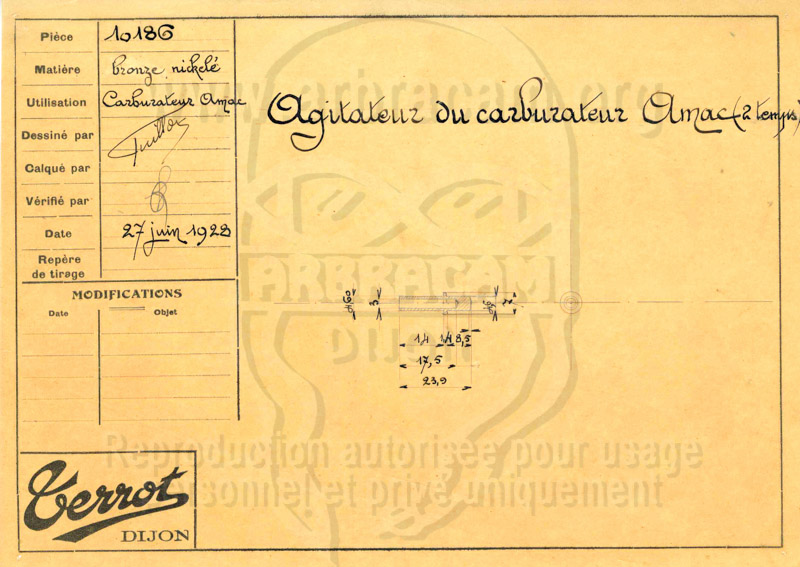 Pièce 10186
Matière bronze nickelé
Utilisation Carburateur Amac
Dessiné par
Calqué par
Vérifié par
Date 27 juin 1928
Repère
de tirage
MODIFICATIONS
Date Objet
Agitateur du carburateur Amac (2 temps)
www.arbracam.org
ARBRACAM
DIJON
3
14 1,4 3,5
17,5
23,9
Reproduction autorisée pour usage
personnel et privé uniquement
Terrot
DIJON